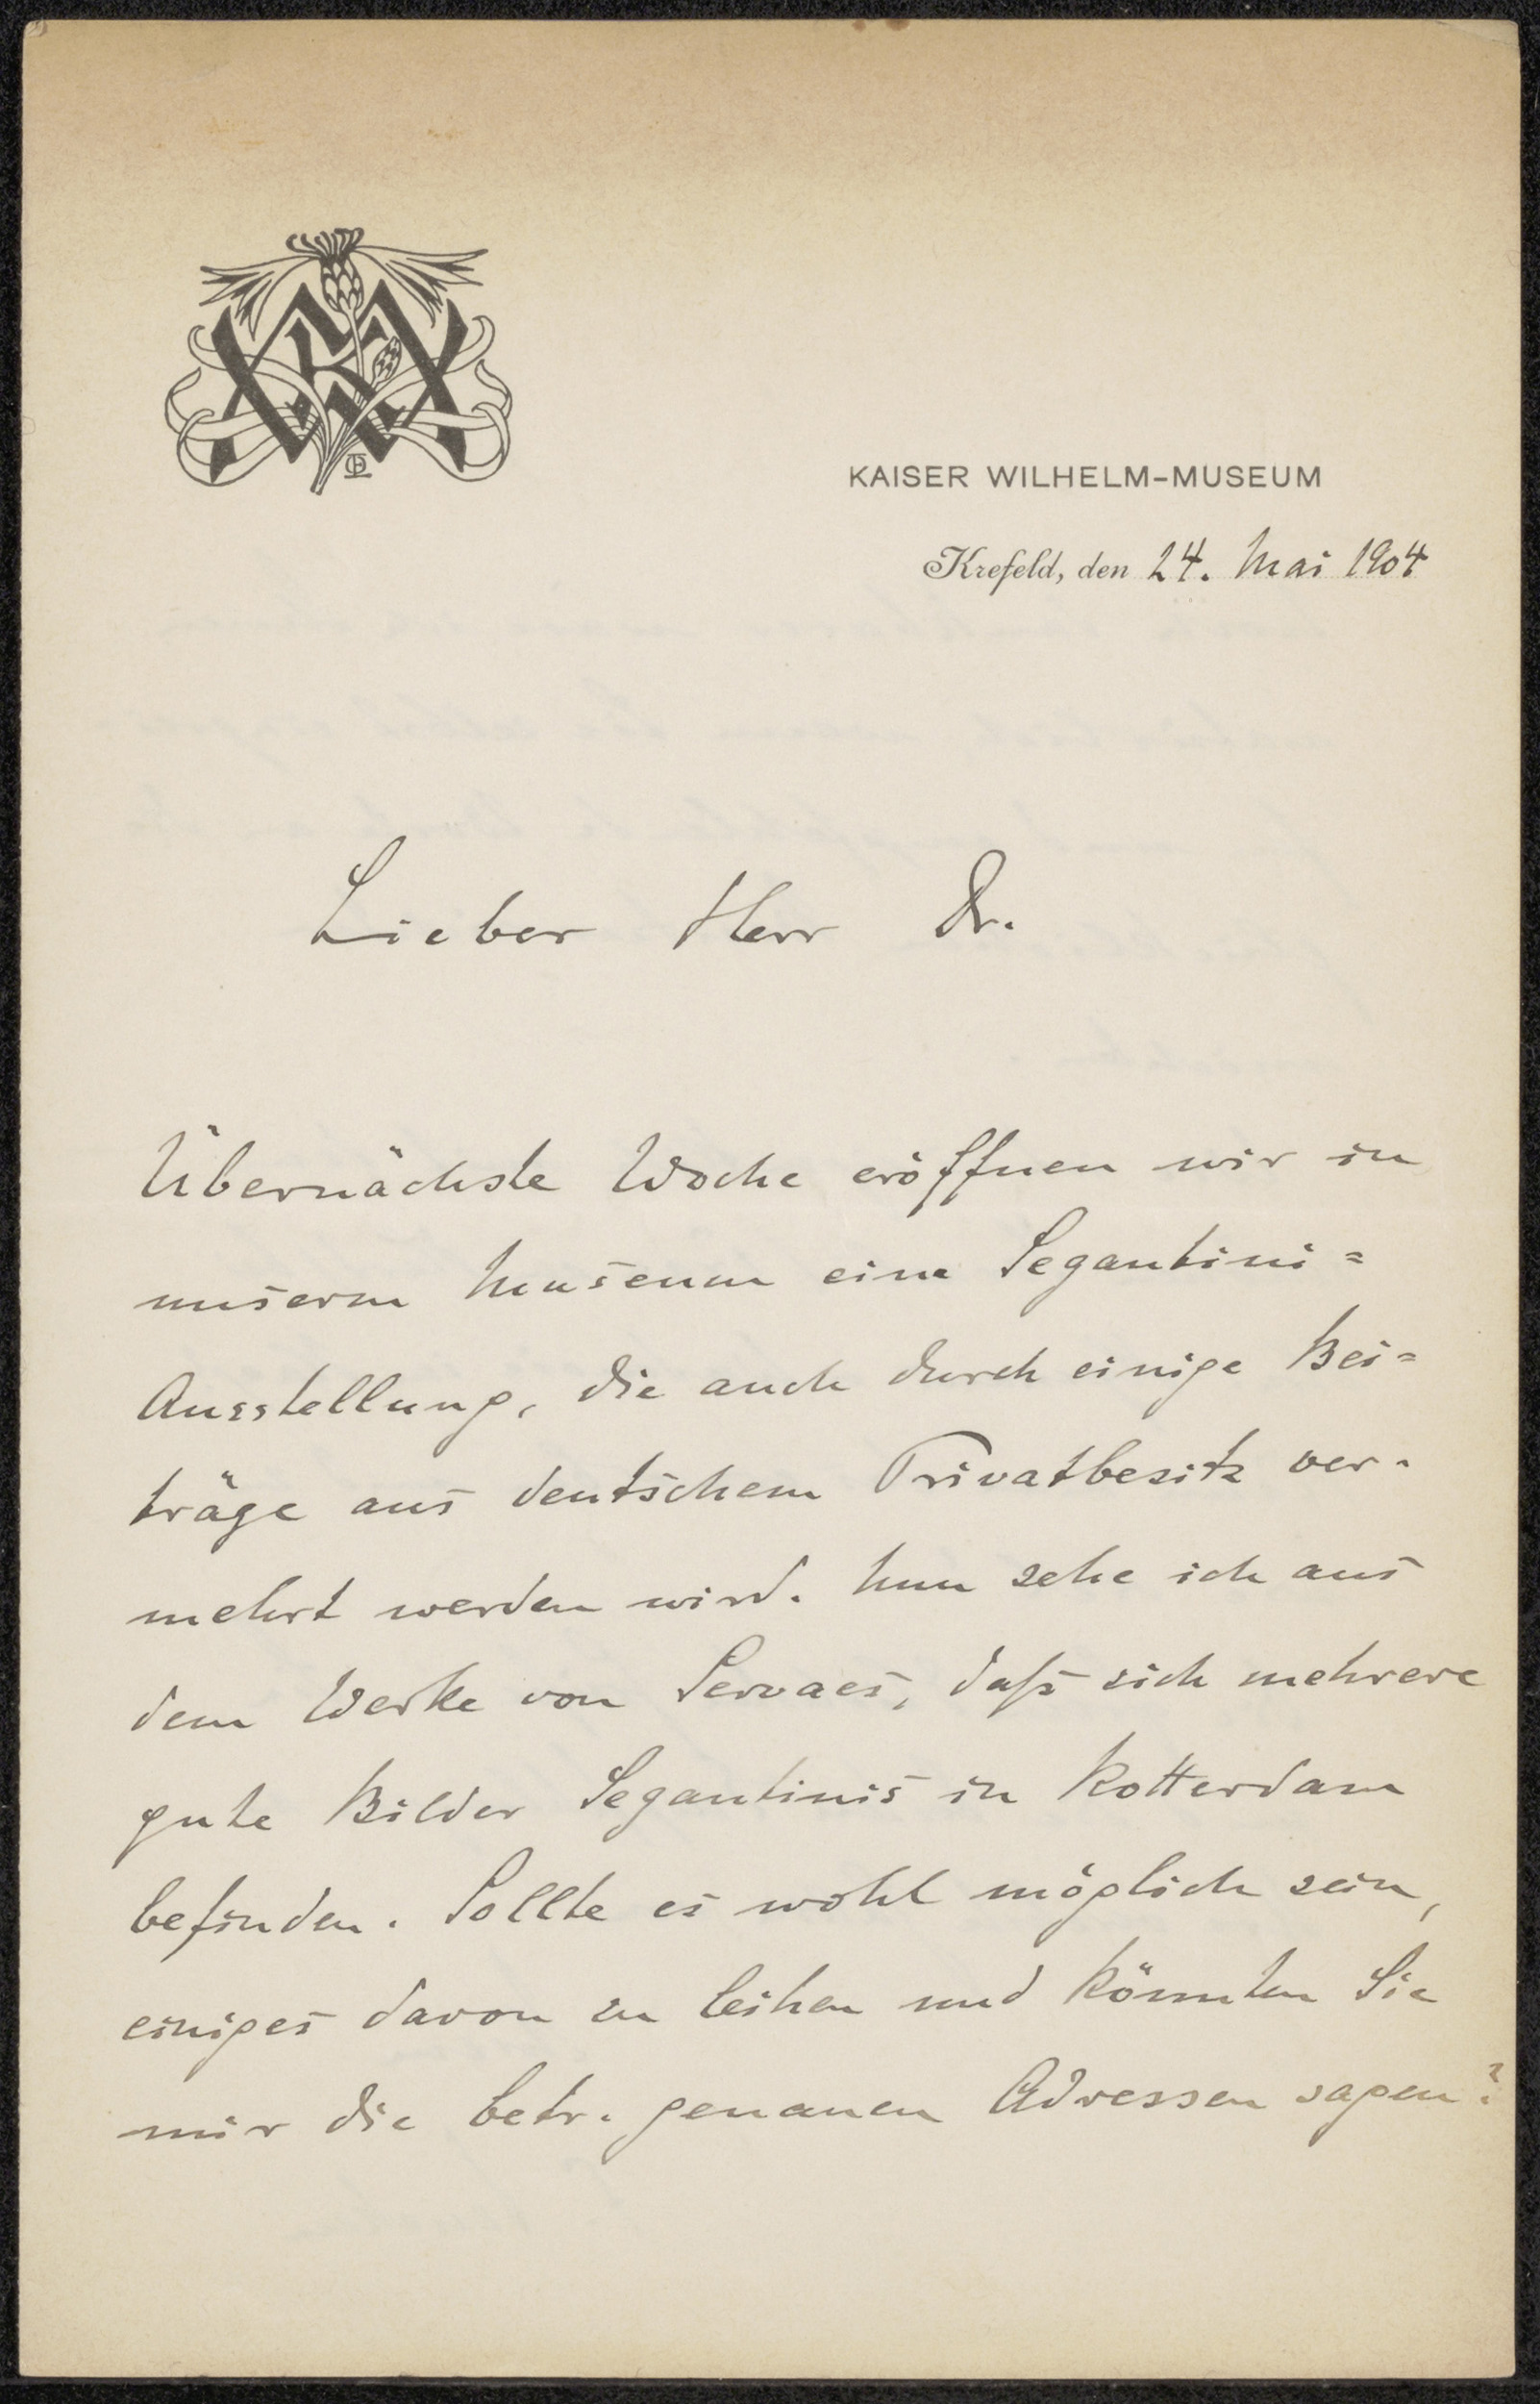 KAISER WILHELM-MUSEUM
Krefeld, den 24. Mai 1904
Lieber Herr Dr.
Übernächste Woche eröffnen wir in
unserm Museum eine Segantini=
Ausstellung, die auch durch einige Bei=
träge aus deutschem Privatbesitz ver-
mehrt werden wird. Nun sehe ich aus
dem Werke von Servaes, daß sich mehrere
gute Bilder Segantinis in Rotterdam
befinden. Sollte es wohl möglich sein,
einiges davon zu leihen und könnten Sie
mir die betr. genauen Adressen sagen?